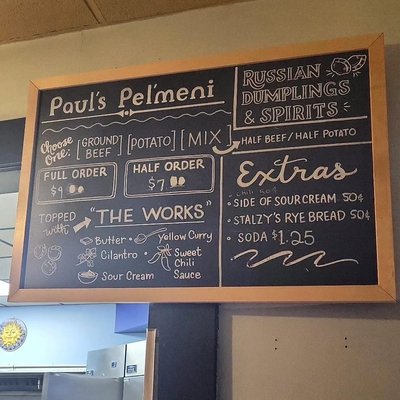 Paul's Pel'meni
RUSSIAN
DUMPLINGS
& SPIRITS
Choose
One:
[GROUND
BEEF]
[POTATO]
[MIX]
HALF BEEF/HALF POTATO
FULL ORDER
$9.00
HALF ORDER
$7.00
TOPPED
with
"THE WORKS"
Butter
Yellow Curry
Cilantro
Sweet
Chili
Sauce
Sour Cream
Extras
CHILI 50¢
• SIDE OF SOUR CREAM 50¢
• STALZY'S RYE BREAD 50¢
• SODA $1.25